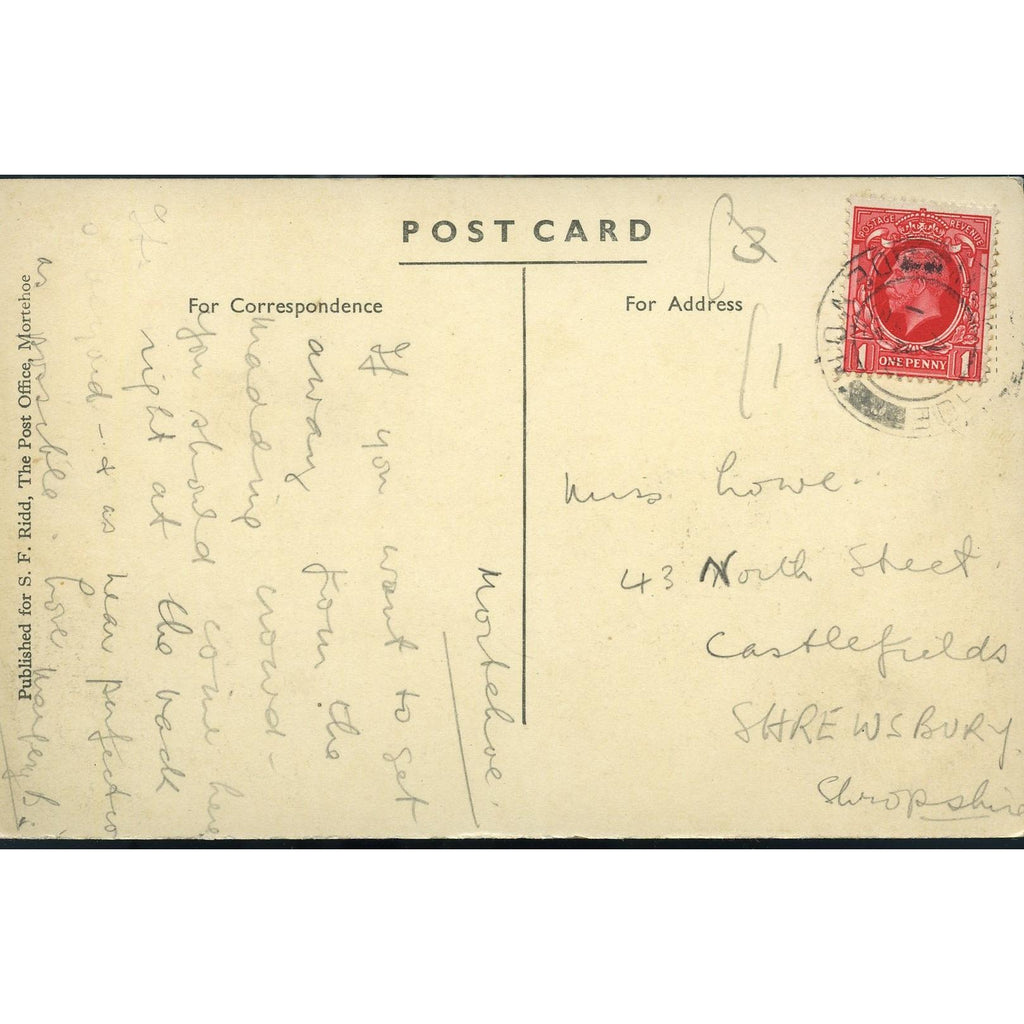 POST CARD
For Correspondence
For Address
Published for S. F. Ridd, The Post Office, Mortehoe
POSTAGE REVENUE
1 ONE PENNY 1
3
1
Miss Lowe.
43 North Street.
Castlefields
SHREWSBURY.
Shropshire
Mortehoe.
If you want to get
away from the
madding crowd -
you should come here
right at the back
of
- & as near perfectio
as possible. love